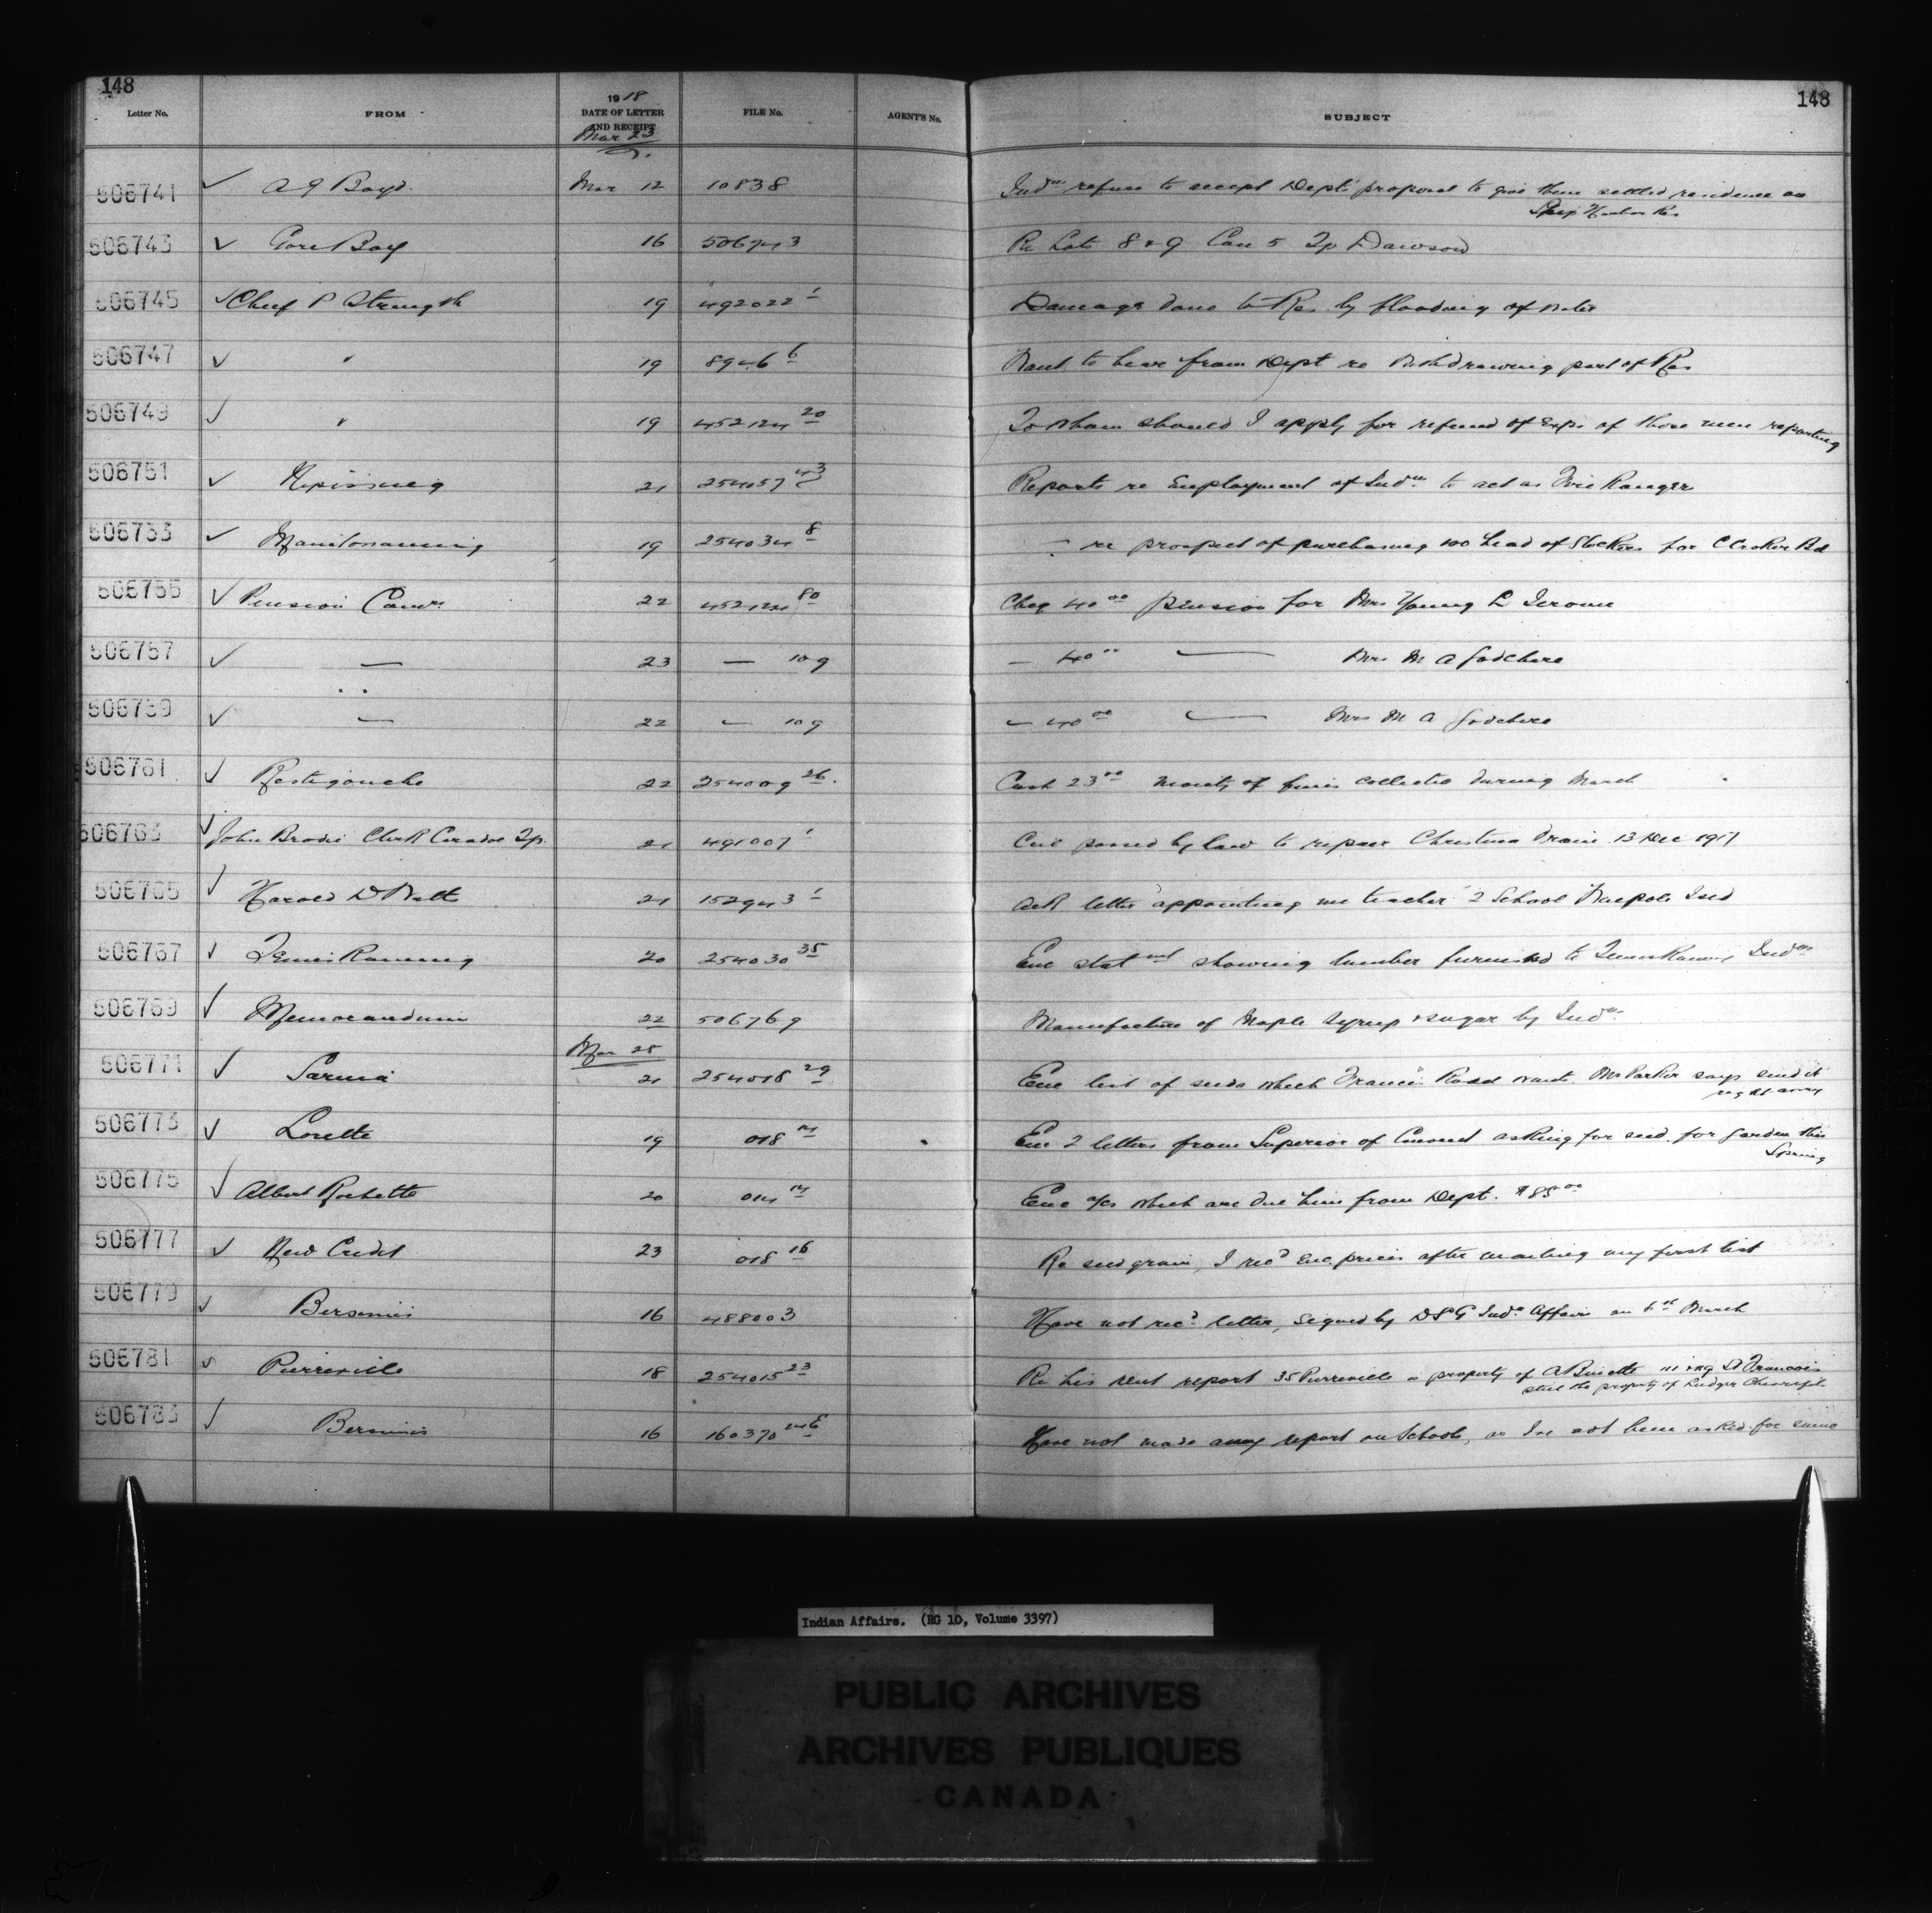 148
148
Letter No. FROM 1918 DATE OF LETTER AND RECEIPT FILE No. AGENT'S No. SUBJECT
Mar 23
506741 ✓ A J Boyd. Mar 12 10838 Indns refuse to accept Dept's proposal to give them settled residence on
Ship Harbor Res
506743 ✓ Gore Bay 16 506743 Re Lots 8 & 9 Con 5 Tp Dawson
506745 ✓ Chief P Strength 19 492022 1 Damage done to Res. by flooding of water
506747 ✓ " 19 8946 6 Want to hear from Dept re Withdrawing part of Res
506749 ✓ " 19 452124 20 To whom should I apply for refund of Exps of those men reporting
506751 ✓ Nipissing 21 254057 43 Reports re Employment of Indns to act as Fire Ranger
506753 ✓ Manitowaning 19 254034 8 - re prospect of purchasing 100 head of Stockers for C Croker Bd
506755 ✓ Pension Comrs 22 452124 80 Cheq 40 00 pension for Mrs Young L Jerome
506757 ✓ — 23 — 109 — 40 00 — Mrs M A Godchere
506759 ✓ — 22 — 109 — 40 00 — Mrs M A Godchere
506761 ✓ Restigouche 22 254009 26. Cash 23 00 moiety of fines collected during March
506763 ✓ John Brodie Clerk Caradoc Tp. 21 491007 1 Coun passed by law to repair Christina Drain 13 Dec 1917
506765 ✓ Harold D 21 152943 1 Ack letter appointing me teacher 2 School Walpole Isld
506767 ✓ Temiskaming 20 254030 35 Enc statmt showing lumber furnished to Temiskaming Indns
506769 ✓ Memorandum 22 506769 Manufacture of Maple Syrup & sugar by Indns
Mar 25
506771 ✓ Sarnia 21 254018 29 Enc list of seeds which Francis Rodd wants. Mr Parker says send it
right away
506773 ✓ Lorette 19 018 14 Enc 2 letters from Superior of Convent asking for seed for Garden this
Spring
506775 ✓ Albert Rochette 20 014 14 Enc a/cs which are due him from Dept. $85 00
506777 ✓ New Credit 23 018 16 Re seed grain, I recd enc prices after mailing my first list
506779 ✓ Bersimis 16 488003 Have not recd letter, signed by D S G Indn Affairs on 6th March
506781 ✓ Pierreville 18 254015 23 Re his rent report 35 Pierreville property of A St Francois
still the property of Ludger
506783 ✓ Bersimis 16 160370 Have not made any report on Schools, as I've not been asked for same
Indian Affairs. (RG 10, Volume 3397)
PUBLIC ARCHIVES
ARCHIVES PUBLIQUES
CANADA